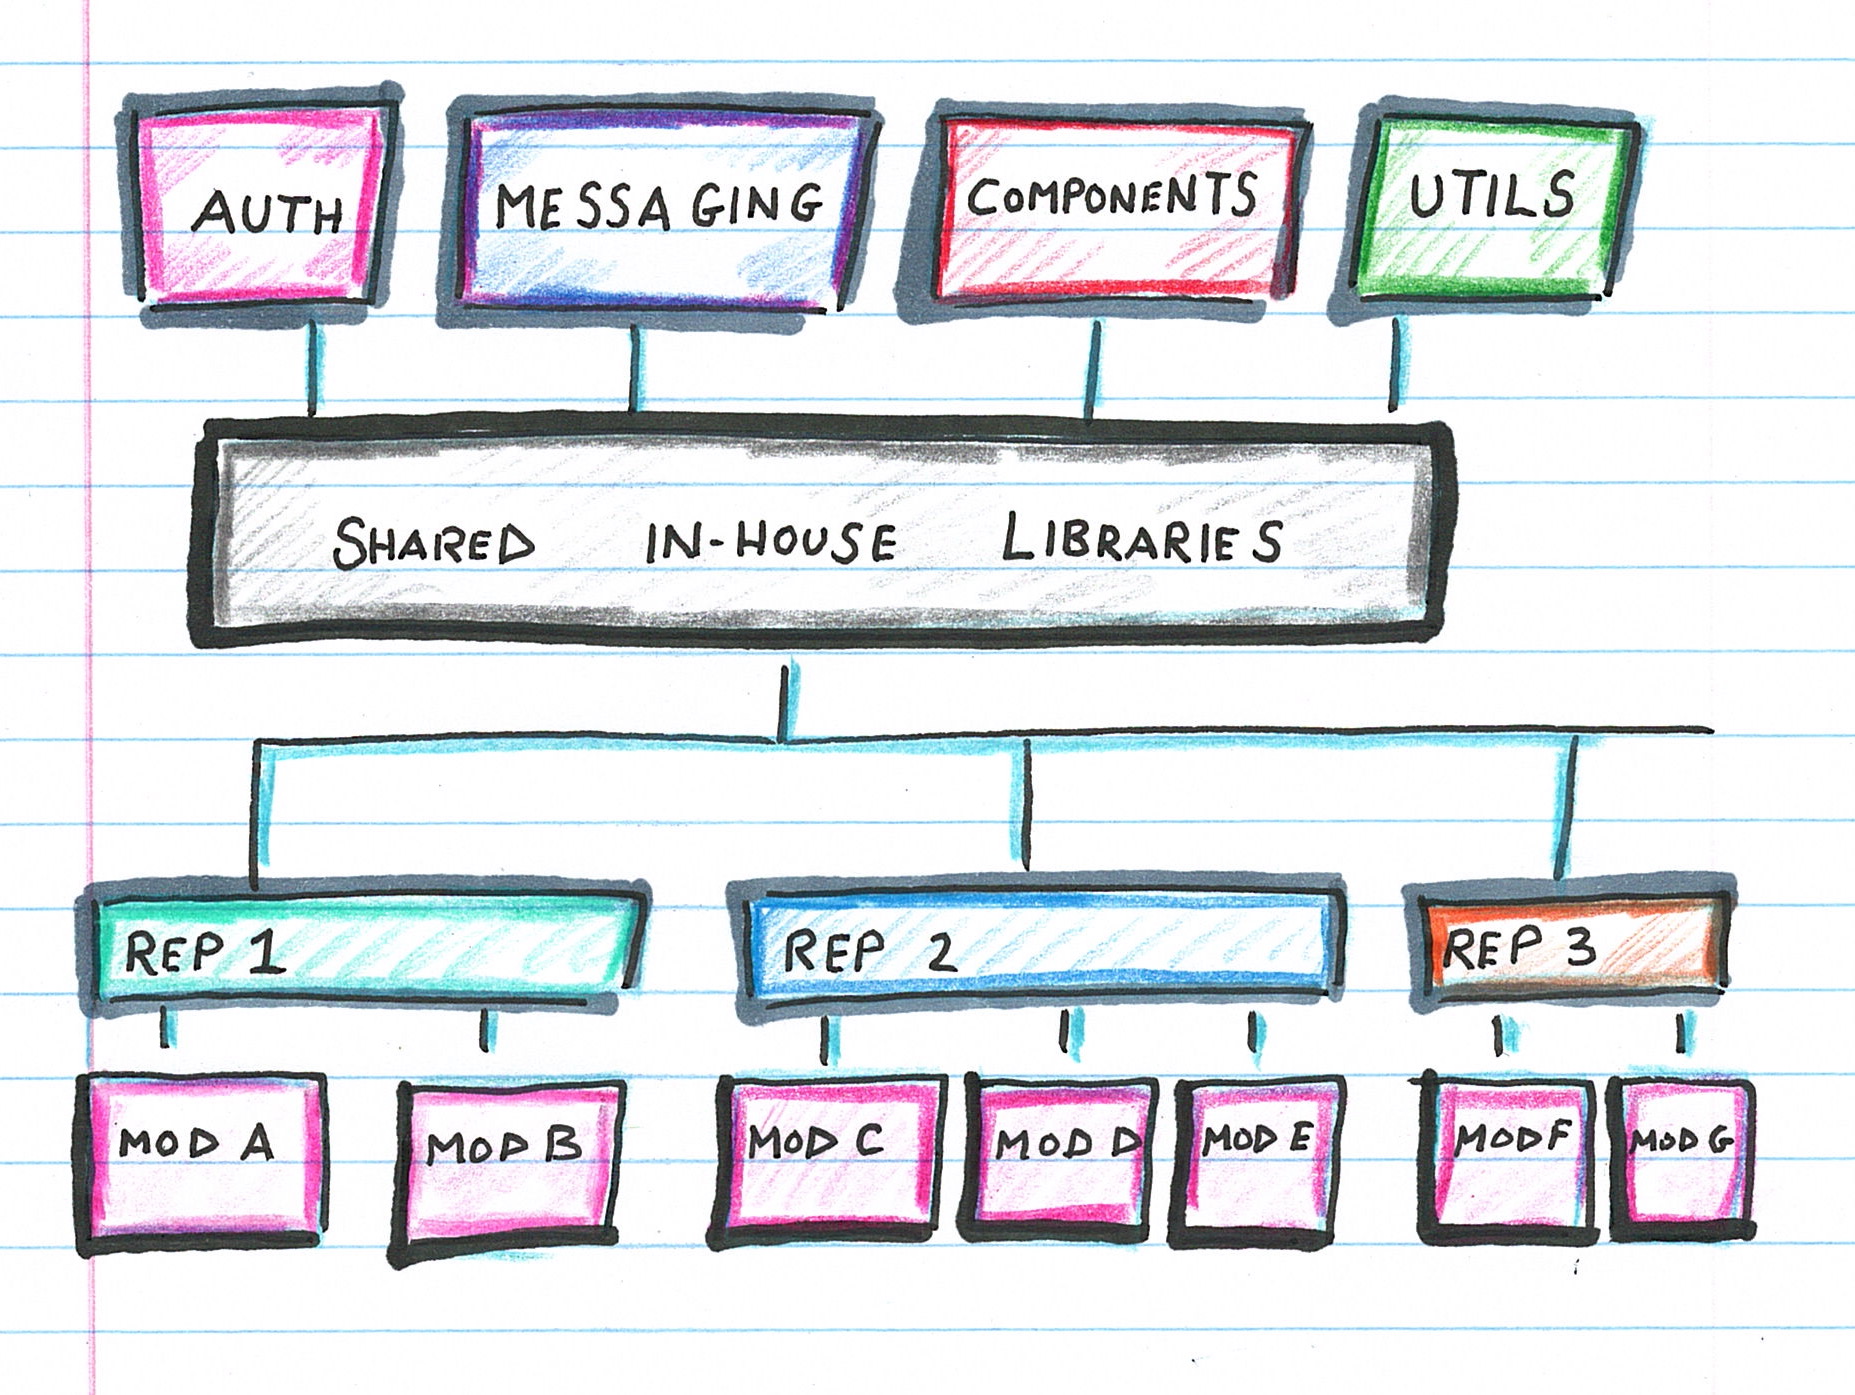 AUTH
MESSAGING
COMPONENTS
UTILS
SHARED IN-HOUSE LIBRARIES
REP 1
REP 2
REP 3
MOD A
MOD B
MOD C
MOD D
MOD E
MOD F
MOD G